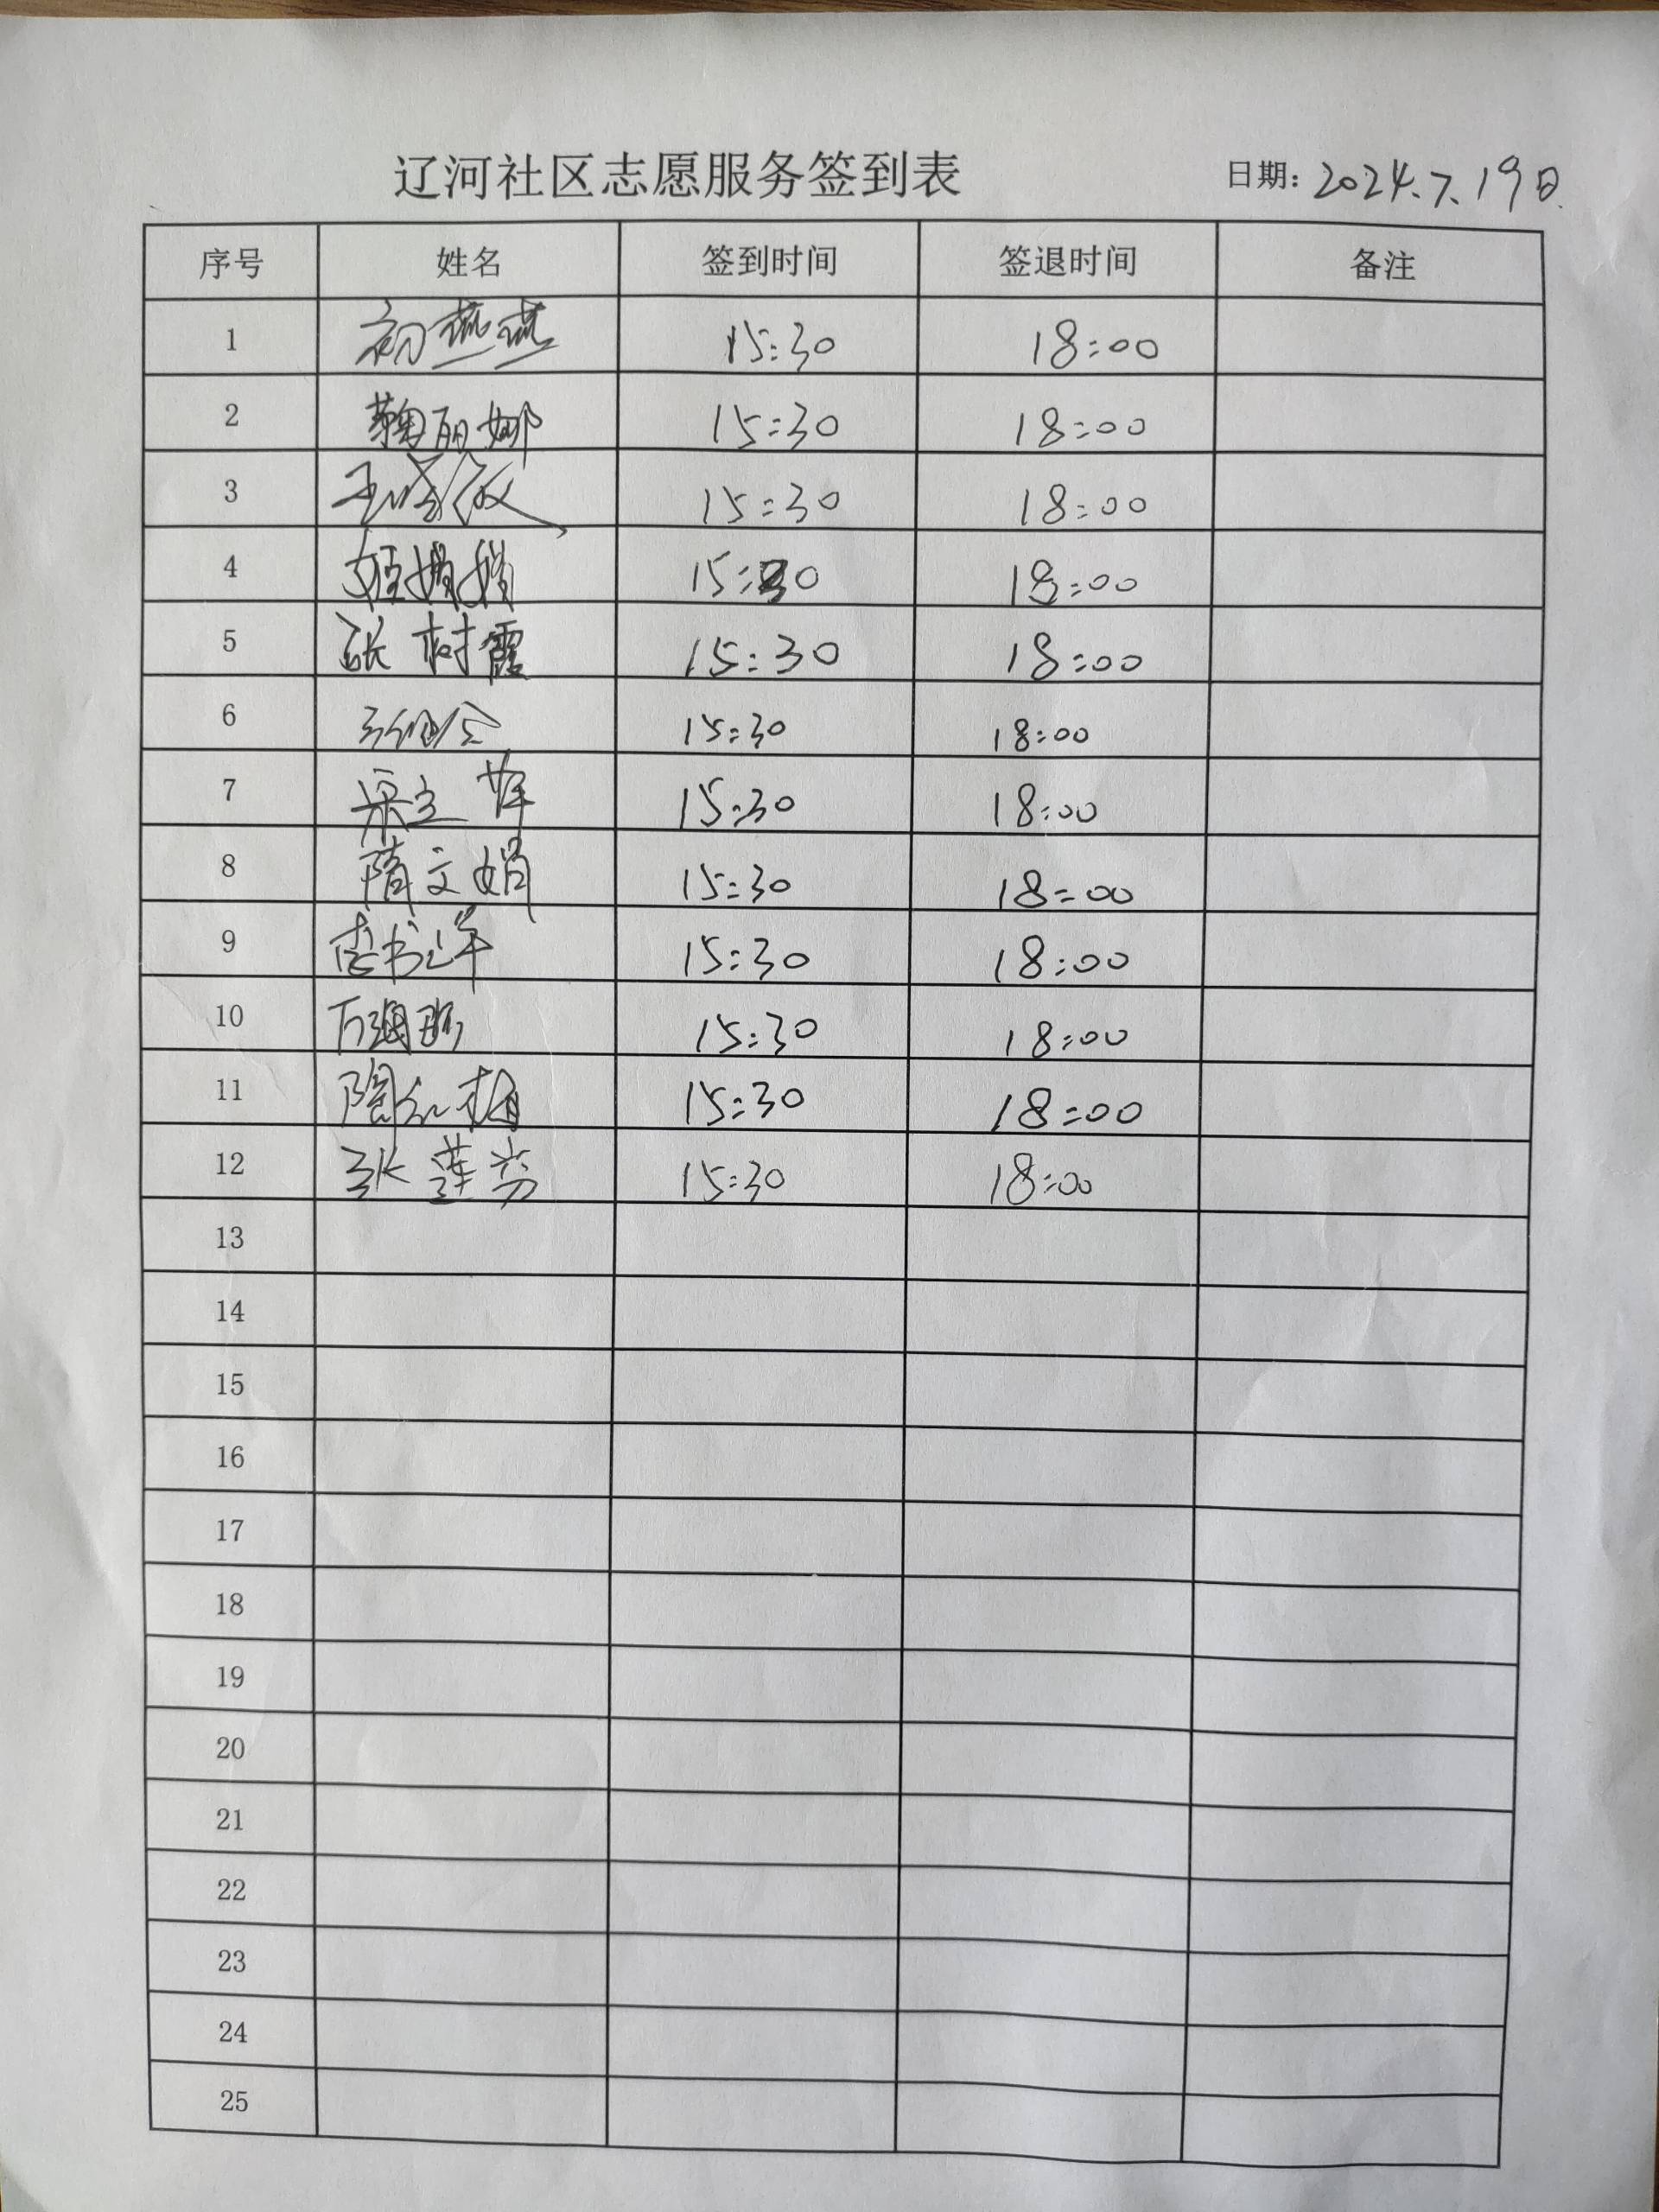 辽河社区志愿服务签到表 日期: 2024.7.19日
序号 姓名 签到时间 签退时间 备注
1 初燕燕 15:30 18:00
2 鞠丽娜 15:30 18:00
3 王 15:30 18:00
4 姬娟娟 15:30 18:00
5 张树霞 15:30 18:00
6 15:30 18:00
7 宋立萍 15:30 18:00
8 隋文娟 15:30 18:00
9 李书萍 15:30 18:00
10 15:30 18:00
11 陶红梅 15:30 18:00
12 张莲芳 15:30 18:00
13
14
15
16
17
18
19
20
21
22
23
24
25